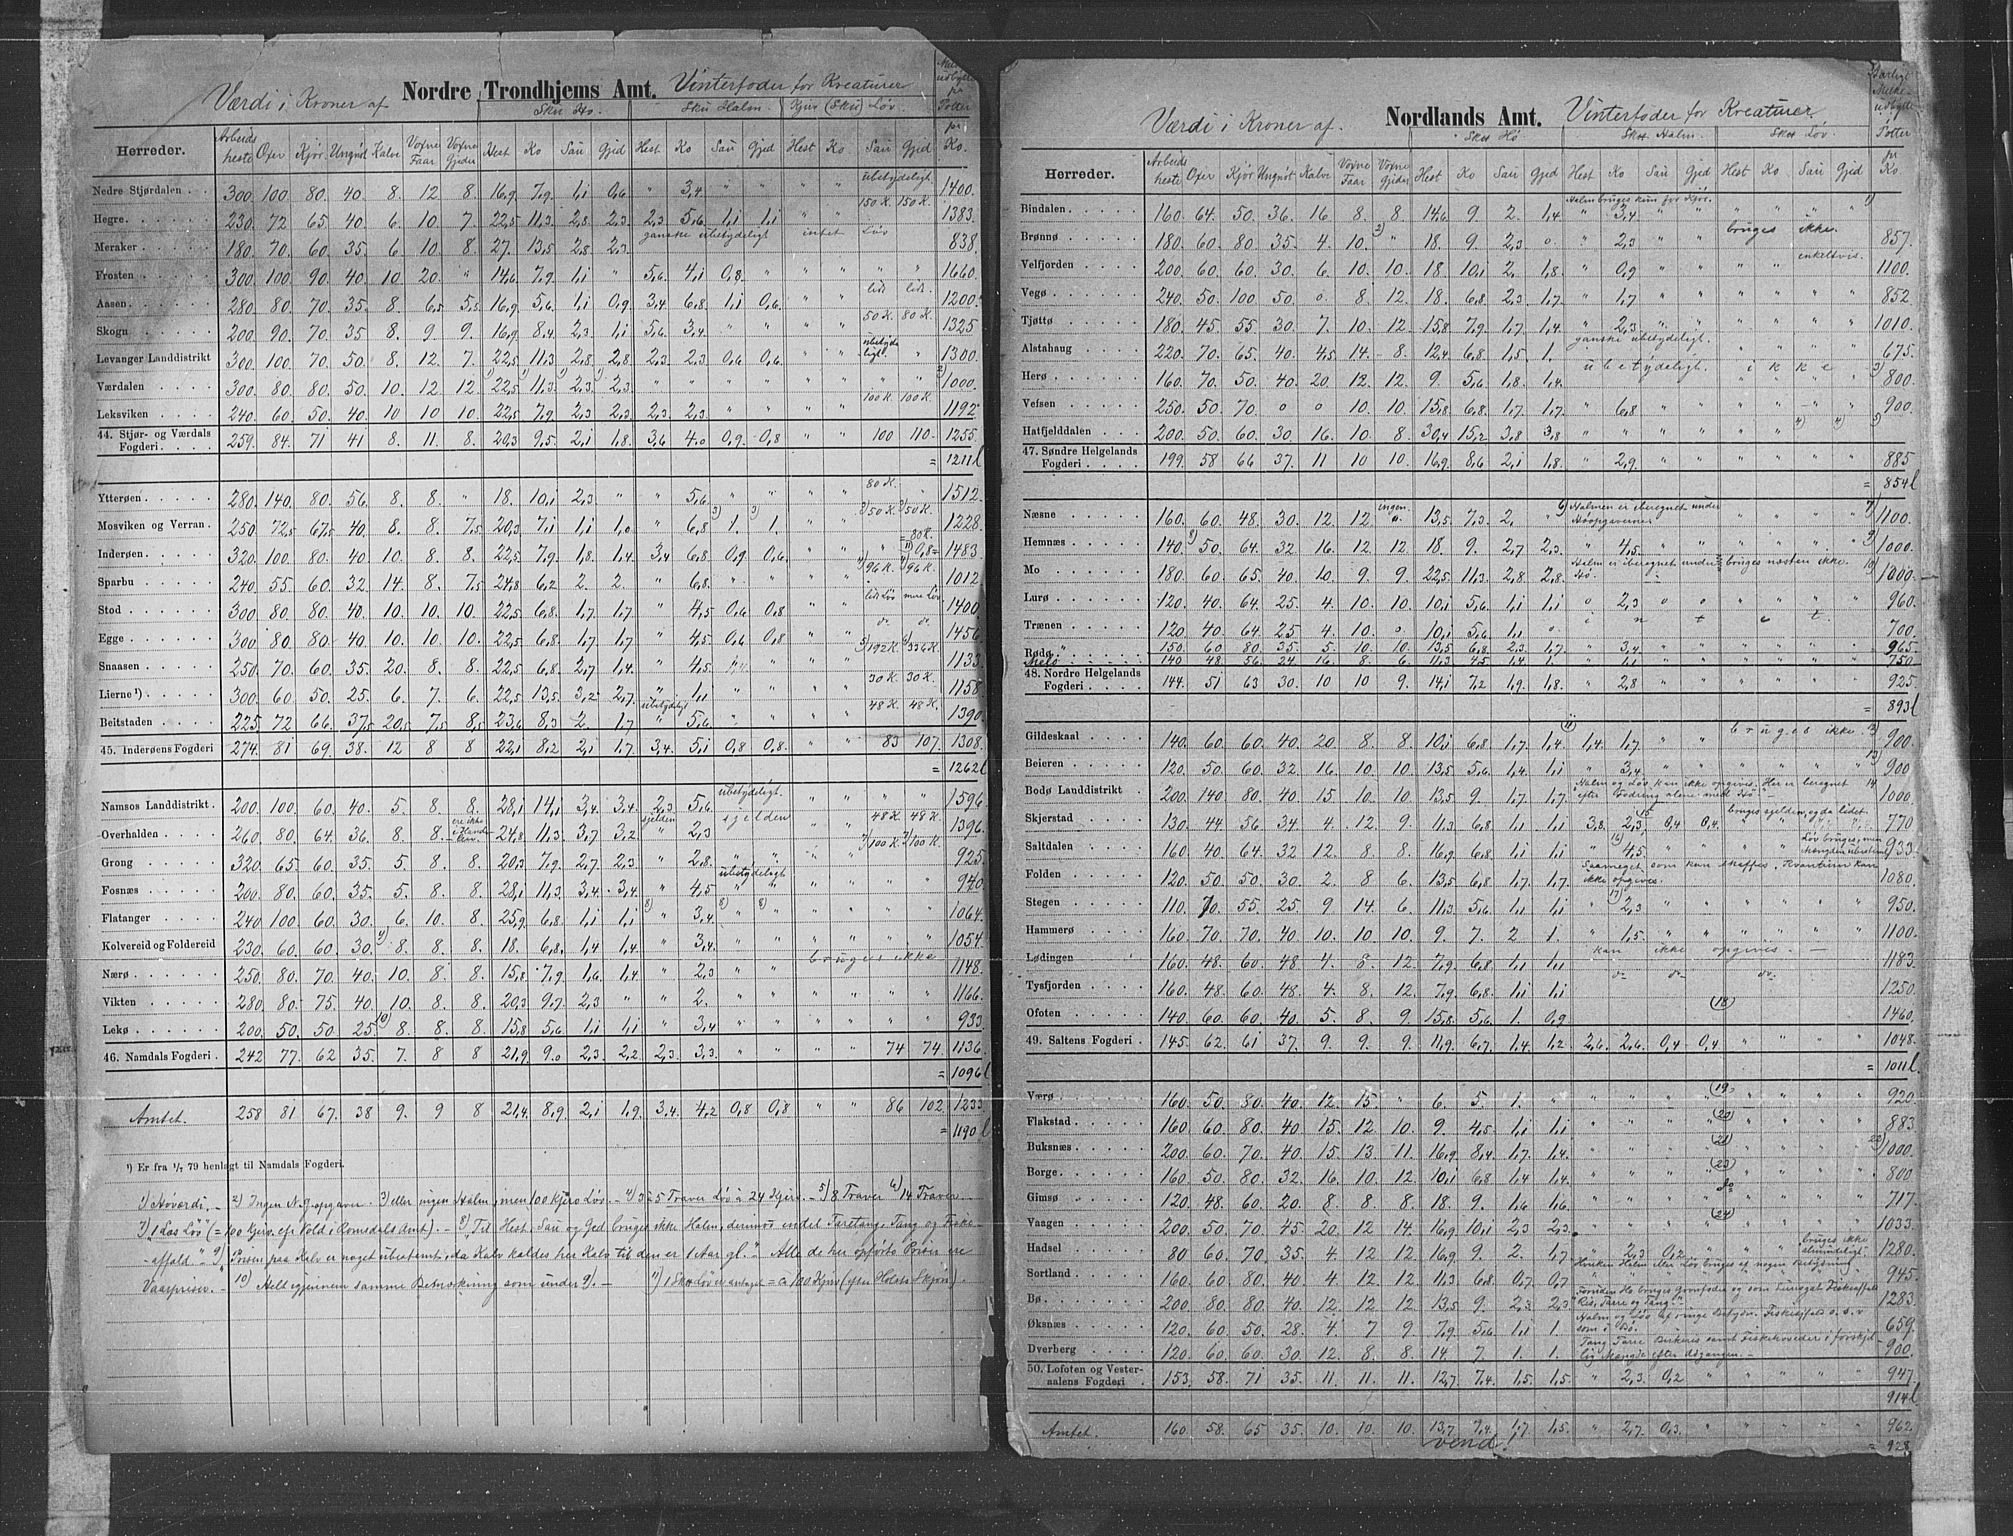 Værdi i Kroner af Nordre Trondhjems Amt. Vinterfoder for Kreaturer
Skp. Hø. Skp. Halm. Kjær (Skp) Løv.
Herreder. Arbeids heste Oxer Kjør Ungnøt Kalve Voxne Faar Voxne Gjeder Hest Ko Sau Gjed Hest Ko Sau Gjed Hest Ko Sau Gjed Potter pr Ko.
Nedre Stjørdalen . . 300. 100. 80. 40. 8. 12. 8. 16,9 7,9. 1,1 0,6 " 3,4 " " " " ubetydeligt 1400.
Hegre. . . . . . 230. 72. 65. 40. 6. 10. 7. 22,5 11,3. 2,8. 2,3. 2,3. 5,6. 1,1 1,1 " " 150 K. 150 K. 1383.
Meraker . . . . 180. 70. 60. 35. 6. 10. 8. 27. 13,5 2,8. 2,3 ganske ubetydeligt intet Løv 838.
Frosten . . . . 300. 100. 90. 40. 10. 20. " 14,6 7,9. 1,1 " 5,6. 4,1 0,8. " " " " " 1660.
Aasen . . . . . 280. 80. 70. 35. 8. 6,5 5,5 16,9 5,6. 1,1 0,9. 3,4 6,8. 1,1 0,6 " " lidt lidt. 1200.
Skogn . . . . . 200. 90. 70. 35 8. 9. 9. 16,9 8,4. 2,3. 1,1 5,6. 3,4 " " " " 50 K. 80 K. 1325
Levanger Landdistrikt 300. 100. 70. 50. 8. 12. 7. 22,5 11,3 2,8 2,8 2,3 2,3 0,6 0,6 " " ubetydeligt. 1300.
Værdalen . . . . 300. 80. 80. 50. 10. 12 12 1) 22,5 1) 11,3. 1) 2,3. 1) 2,3. " " " " " " " " 2) 1000.
Leksviken . . . . 240. 60. 50. 40. 10 10 10. 22,5 7,9 2,3 2,3 2,3. 2,3. " " " " 100 K. 100 K. 1192
44. Stjør- og Værdals
Fogderi . . . . 259. 84. 71 41 8. 11. 8. 20,3 9,5. 2,1 1,8. 3,6 4,0 0,9. 0,8 " " 100 110. 1255.
= 1211 l
Ytterøen . . . . 280. 140. 80. 56. 8. 8. " 18. 10,1 2,3 " " 5,6 " " " " 80 K. " 1512.
Mosviken og Verran . 250. 72,5 67,5 40. 8. 8. 7,5 20,3 7,1 1,1 1,0 " 6,8 3) 1. 3) 1. " " 3) 50 K. 3) 50 K. 1228.
Inderøen . . . . 320. 100. 80. 40. 10. 8. 8. 22,5 7,9. 1,8. 1,4 3,4 6,8 0,9. 0,6 " " " = 80 K. 11) 0,8 = 1483.
Sparbu . . . . 240. 55. 60. 32. 14. 8. 7,5 24,8 6,2 2. 2. " 6,8. " " " " 4) 96 K. 4) 96 K. 1012.
Stod . . . . . 300. 80. 80. 40. 10. 10. 10. 22,5 6,8. 1,7. 1,7 " 4,5 0,6 0,8 " " lidt Løv mere Løv 1400
Egge . . . . . 300. 80. 80. 40. 10. 10. 10. 22,5 6,8 1,7 1,7. " 4,5. 0,6 0,8 " " do. do. 1456.
Snaasen . . . . 250. 70. 60. 35. 20. 8. 8. 22,5 6,8. 2,7. 1,4. " 4,5 " " " " 5) 192 K. 6) 336 K. 1133.
Lierne ¹) . . . . 300. 60. 50. 25. 6. 7. 6. 22,5 13,5 3,2 2,7 " 1,1 " " " " 30 K. 30 K. 1158.
Beitstaden . . . 225. 72 66. 37,5 20,5 7,5 8,5 23,6 8,3 2. 1,7 ubetydeligt " 5,6 " " " " 48 K. 48 K. 1390.
45. Inderøens Fogderi 274. 81 69. 38. 12 8 8 22,1 8,2 2,1 1,7. 3,4. 5,1 0,8 0,8. " " 83 107. 1308.
= 1262 l
Namsos Landdistrikt . 200. 100. 60. 40. 5. 8. 8. 28,1 14,1 3,4 3,4 2,3. 5,6 ubetydeligt. " " " " 1596.
Overhalden . . . 260. 80. 64. 36. 8. 8. 24,8. 11,3. 3,7. 3,2 sjelden " 2,3 sjelden " " 48 K. 48 K. 1396.
Grong . . . . . 320. 65. 60. 35. 5. 8. 8. 20,3 7,9. 2,7. 2,3 " 2,8. " " " " 7) 100 K. 7) 100 K. 925.
Fosnæs . . . . 200. 80. 60. 35. 5. 8. 8. 28,1 11,3 3,4 3,4 " 4,5 ubetydeligt " " " " 940.
Flatanger . . . . 240 100. 60. 30. 6. 10. 8. 25,9. 6,8. 1,1 1,1 8) " 3,4 8) " 8) " " " " " 1064.
Kolvereid og Foldereid 230. 60. 60. 30. 9) 8. 8. 8. 18. 6,8. 1,4 1,4 " 3,4. " " " " " " 1054.
Nærø . . . . . 250. 80. 70. 40. 10. 8. 8. 15,8. 7,9. 1,6 1,4 " 2,3 " " bruges ikke 1148.
Vikten . . . . . 280. 80. 75. 40. 10. 8. 8. 20,3 9,7. 2,3 " " 2. " " " " " " 1166.
Lekø . . . . . 200. 50. 50 25. 10) 8. 8. 8. 15,8 5,6. 1,1 1,1 " 3,4 " " " " " " 933.
46. Namdals Fogderi . 242 77. 62 35. 7. 8 8 21,9. 9,0 2,3. 2,2 2,3. 3,3. " " " " 74 74. 1136.
= 1096 l
Amtet. 258 81 67. 38 9. 9 8 21,4. 8,9 2,1 1,9. 3,4. 4,2 0,8 0,8 " " 86 102. 1233
= 1190 l
¹) Er fra 1/7 79 henlagt til Namdals Fogderi.
Værdi i Kroner af. Nordlands Amt. Vinterfoder for Kreaturer.
Skp. Hø Skp. Halm. Skp. Løv.
Herreder. Arbeids heste Oxer Kjør Ungnøt Kalve Voxne Faar Voxne Gjeder Hest Ko Sau Gjed Hest Ko Sau Gjed Hest Ko Sau Gjed Potter pr Ko
Bindalen . . . . 160. 64. 50. 36. 16. 8. 8. 14,6 9. 2. 1,4 Halm bruges kun for Kjør. " 3,4 " " " " " " 1)
Brønnø . . . . 180. 60. 80. 35. 4. 10. 2) " 18. 9. 2,3. 0. " 2,3 " " bruges ikke. 857.
Velfjorden . . . 200. 60. 60. 30. 6. 10. 10. 18. 10,1 2. 1,8. " 0,9 " " " " enkeltvis. 1100.
Vegø . . . . . 240. 50. 100. 50. 0. 8. 12. 18. 6,8. 2,3. 1,7 " 1,7 " " " " " " 852.
Tjøttø . . . . . 180. 45. 55. 30. 7. 10. 12. 15,8. 7,9. 1,7. 1,4 " 2,3 " " " " " " 1010.
Alstahaug . . . . 220. 70. 65. 40. 4,5 14. 8. 12,4 6,8. 1,5. 1. ganske ubetydeligt. " " " " 675.
Herø . . . . . 160. 70. 50. 40. 20. 12. 12. 9. 5,6 1,8. 1,4. ubetydeligt. ikke 3) 800.
Vefsen . . . . 250. 50. 70. 0 0 10. 10. 15,8 6,8. 1,7. 1,7. " 6,8 " " " " " " 900.
Hatfjelddalen . . . 200. 50. 60. 30. 16. 10. 8. 30,4 15,2 3,8 3,8 " " " " " " 4) " 4) " 5)
47. Søndre Helgelands
Fogderi . . . . 199. 58 66 37. 11 10 10. 16,9. 8,6 2,1 1,8. " 2,9. " " " " " " 885
= 854 l
Næsne . . . . 160. 60. 48. 30. 12. 12. ingen " 13,5 7,3 2. " 6) Halmen er iberegnet under Høopgaverne " " " " 7) 1100.
Hemnæs . . . . 140. 8) 50. 64. 32 16. 12. 12. 18. 9. 2,7 2,3. " 4,5 " " " " " " 9) 1000.
Mo . . . . . . 180. 60. 65. 40. 10. 9. 9. 22,5 11,3 2,8 2,8. Halm er iberegnet under Hø. bruges næsten ikke. 10) 1000.
Lurø . . . . . 120. 40. 64. 25. 4. 10. 10. 10,1 5,6 1,1 1,1 0 2,3 0 0 " " " " 960.
Trænen . . . . 120. 40. 64. 25 4. 10. 0. 10,1 5,6. 1,1 0. intet. 700.
Rødø " . . . . 150. 60. 80. 35. 5. 10. 10. 13,5 6,8. 2,3. 1,7. " 3,4 " " " " " " 965.
Melø 140 48 56 24 16. 8 6. 11,3 4,5 1,4. 1. " 1,1 " " " " " " 750.
48. Nordre Helgelands
Fogderi . . . . 144. 51 63 30. 10 10 9. 14,1 7,2 1,9. 1,8. " 2,8 " " " " " " 925.
= 893 l
Gildeskaal . . . . 140. 60. 60. 40. 20. 8. 8. 10,1 6,8 1,7. 1,4 11) 1,4. 1,7. " " bruges ikke. 12) 900.
Beieren . . . . 120. 50. 60. 32. 16. 10. 10. 13,5 5,6. 1,4. 1,1 " 3,4 " " " " " " 13) 900
Bodø Landdistrikt . 200. 140. 80. 40. 15. 10. 10. 13,5 9. 1,7. 1,7. Halm og Løv kan ikke opgives. Her er beregnet efter Fodring alene med Hø. 14 1000.
Skjerstad . . . . 130. 44. 56. 34. 4. 12. 9. 11,3 6,8. 1,1 1,1 3,8. 15) 2,3 0,4 0,4. bruges sjelden, og da lidet. 770
Saltdalen . . . . 160. 40. 64. 32. 12. 8. 8. 16,9. 6,8 1,1 1,1 " 16) 4,5 " " " " Løv bruges, men Mængden ubestemt 933.
Folden . . . . 120. 50. 50. 30. 2. 8. 6. 13,5 6,8. 1,7. 1,7. Saameget som kan skaffes. Kvantum kan ikke opgives. 1080.
Stegen . . . . 110. 70. 55. 25. 9. 14. 6. 11,3 5,6 1,1 1,1 " 17) 2,3 " " " " " " 950.
Hammerø . . . 160. 70. 70. 40. 10. 10. 10. 9. 7. 2. 1. " 1,5. " " " " " " 1100.
Lødingen . . . 160. 48. 60. 48. 4. 8. 12. 7,9. 6,8 1,1 1,1 kan ikke opgives. — 1183.
Tysfjorden . . . . 160. 48. 60. 48. 4. 8. 12. 7,9. 6,8. 1,1 1,1 do. do. do. 1250.
Ofoten . . . . . 140. 60. 60. 40. 5. 8. 9. 15,8 5,6. 1. 0,9 18) 1460.
49. Saltens Fogderi . 145. 62 61 37. 9. 9. 9. 11,9. 6,7. 1,4. 1,2 2,6. 2,6. 0,4 0,4. " " " " 1048.
= 1011 l
Værø . . . . . 160. 50. 80. 40. 12. 15. " 6. 5. 1. " " " " " 19) " " " " 920
Flakstad . . . . 160. 60. 80. 40. 15. 12 10. 9. 4,5. 1,1 1,1 " " " " 20) " " " " 883
Buksnæs . . . . 200. 60. 70. 40. 15. 13. 11. 16,9 8,4. 1,7. 1,4. " " " " 21) " " " " 22) 1000.
Borge . . . . . 160. 50. 80. 32. 16. 10. 12. 10,1 6,8 1,4 1,4. " " " " 23) " " " " 800
Gimsø . . . . 120. 48. 60. 20. 8. 8. 8. 18. 9. 1,6. 1,6. " " " " do " " " " 717.
Vaagen . . . . 200. 50. 70. 45. 20. 12. 14. 16,9. 10,1 2,3 2,3. " " " " 24) " " " " 1033.
Hadsel . . . . . 80. 60. 70. 35. 4. 12. 12. 16,9. 9. 2. 1,7. " 2,3 0,2 " " " bruges ikke almindeligt. 1280.
Sortland . . . . 160. 60. 80. 40. 4. 12. 12. 11,3 6,8 0,7 0,7 Hverken Halm eller Løv bruges af nogen Betydning. 945.
Bø . . . . . . 200. 80. 80. 40. 12. 12. 12. 13,5. 9. 2,3. 2,3 Foruden Hø bruges Grønfoder og som Surrogat Fiskeaffald Ris, Tarre og Tang. 1283.
Øksnæs . . . . 120. 60. 50. 28. 4. 7. 9. 7,9. 5,6. 1,1 1. Halm og Løv af ringe Betydn. Fiskeaffald o.s.v. som i Bø. 659.
Dverberg . . . . 120. 60. 60. 30. 12. 8. 8. 14. 7. 1. 1. Tang Tarre Birkeris samt Fiskehoveder i forskjellig Mængde efter Adgangen. — 900.
50. Lofoten og Vester-
aalens Fogderi . 153. 58. 71 35. 11. 11. 11. 12,7. 7,4. 1,5. 1,5. " 2,3. 0,2 " " " " " 947.
914 l
Amtet. 160. 58 65 35. 10. 10. 10. 13,7. 7,4. 1,7. 1,5 " 2,7. 0,3. " " " " " 962
vend! = 928
1) Høværdi. — 2) Ingen N.opgaver. 3) eller ingen Halm, men 100 Kjerv Løv. — 4) 3 à 5 Traver Løv à 24 Kjerv. — 5) 8 Traver 6) 14 Traver —
7) "1 Læs Løv" (= 100 Kjerv efr. Vold i Romsdals Amt). — 8) "Til Hest, Sau og Ged bruges ikke Halm, derimod endel Taretang, Tang og Fiske-
affald." 9) "Prisen paa Kalv er noget ubestemt, da Kalv kaldes her Kalv til den er 1 Aar gl." Alle de her opførte Priser ere
Vaarpriser. 10) Alt igjennem samme Bemærkning som under 9). — 11) 1 Skp Løv er antaget = ca 100 Kjerv (efter Holsts Skjøn).